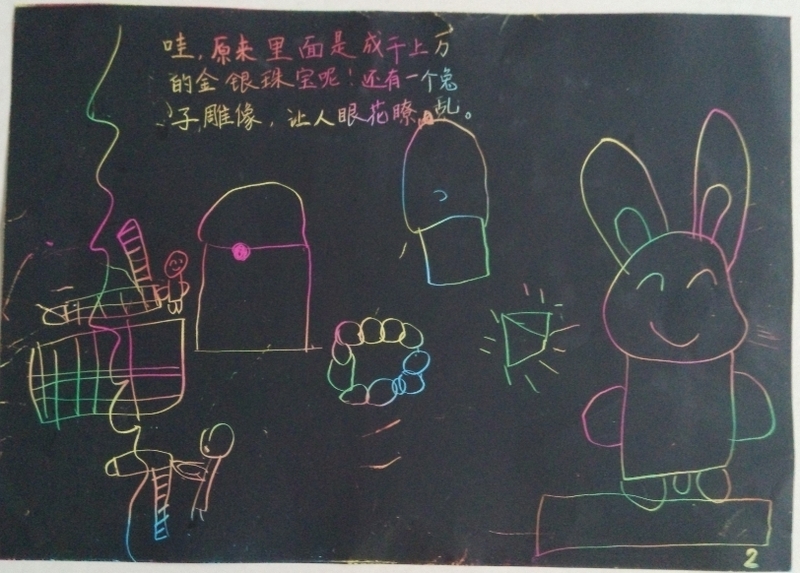 哇,原来里面是成千上万
的金银珠宝呢!还有一个兔
子雕像,让人眼花瞭乱。
2